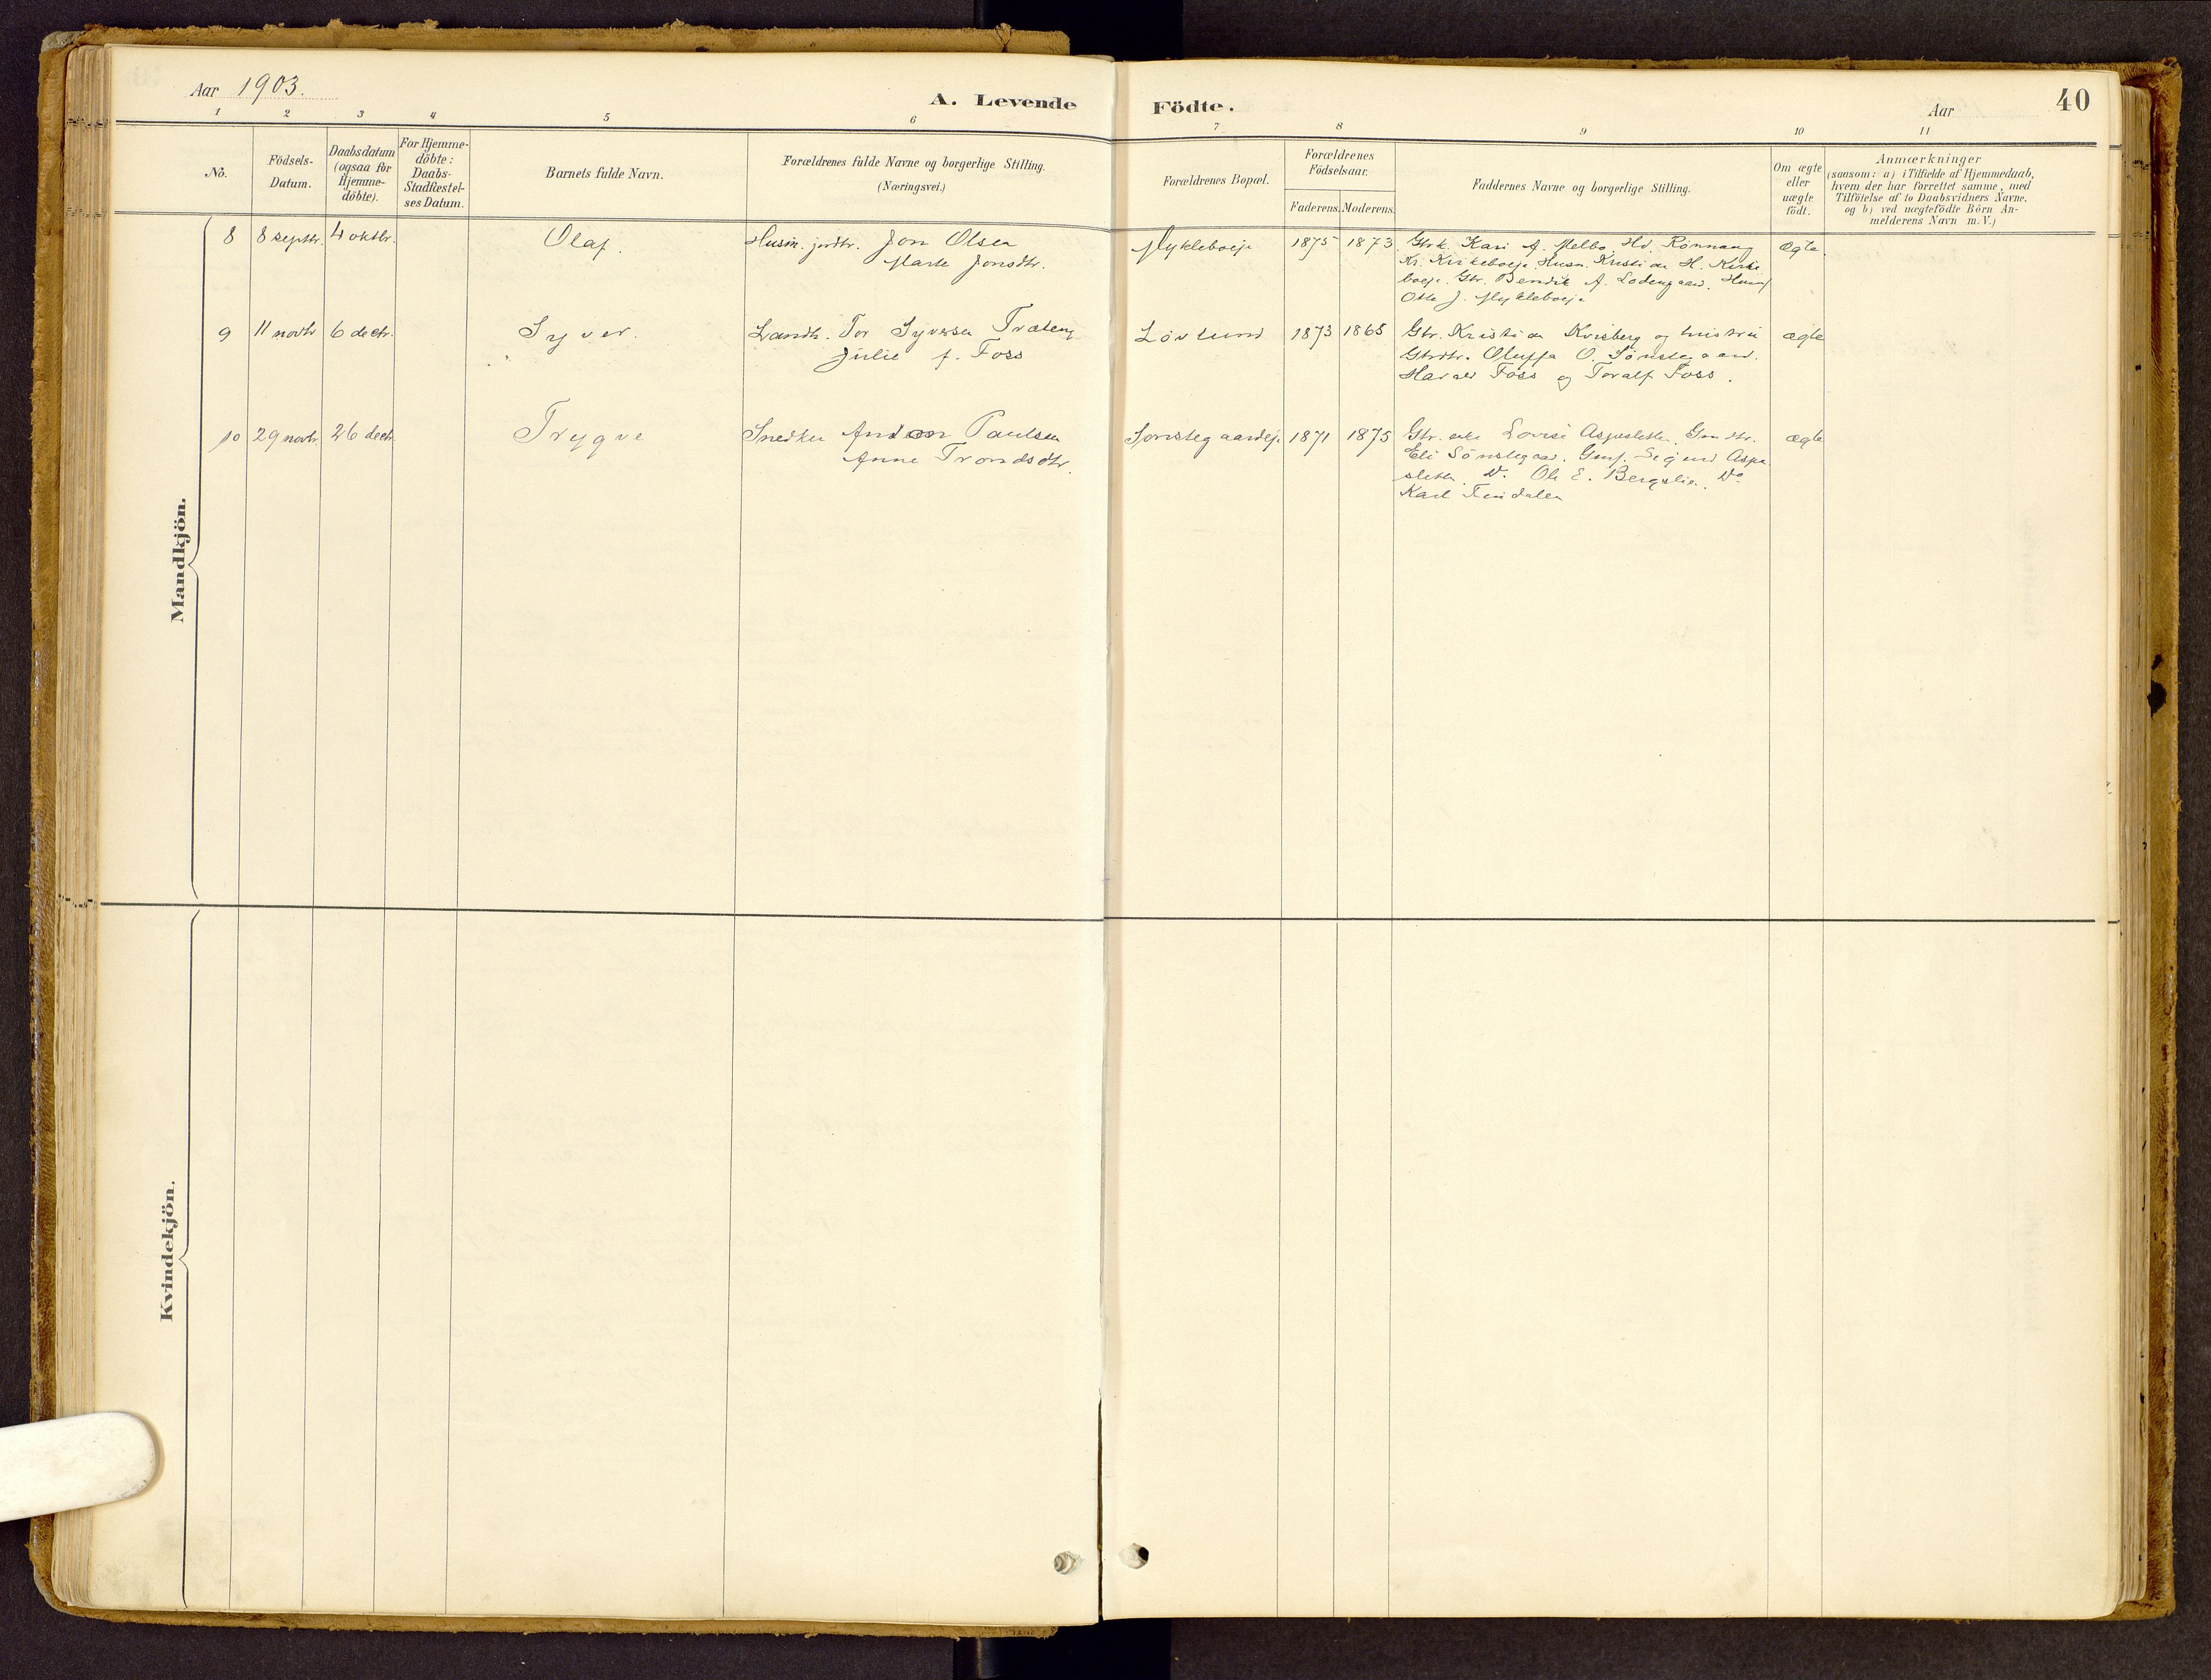 Aar 1903.
A. Levende Födte.
Aar
40
1 2 3 4 5 6 7 8 9 10 11
No.
Födsels-
Datum.
Daabsdatum
(ogsaa for
Hjemme-
döbte).
For Hjemme-
döbte:
Daabs-
Stadfæstel-
ses Datum.
Barnets fulde Navn.
Forældrenes fulde Navne og borgerlige Stilling.
(Næringsvei.)
Forældrenes Bopæl.
Forældrenes
Födselsaar.
Faderens. Moderens.
Faddernes Navne og borgerlige Stilling.
Om ægte
eller
uægte
födt.
Anmærkninger
(saasom: a) i Tilfælde af Hjemmedaab,
hvem der har forrettet samme, med
Tilföielse af to Daabsvidners Navne,
og b) ved uægtefödte Börn An-
melderens Navn m.V.)
Mandkjön.
8 8 septbr. 4 oktbr. Olaf. Husm. jordbr. Jon Olsen
Marte Jonsdtr.
Mykleboeje 1875 1873 Gbrk. Kari A. Melbo. Hd. Rönnaug
Kr. Kirkeboeje. Husm. Kristian H. Kirke
boeje. Gbr. Bendik A. Lodengaard. Husm
Otto J. Mykleboeje
ægte.
9 11 novbr 6 decbr. Syver. Landh. Tor Syversen Træteng
Julie f. Foss
Løvlund 1873 1865 Gbr. Kristian Kvisberg og hustru
Gbrdtr. Oluffa O. Sønstegaard.
Harald Foss og Toralf Foss.
ægte
10 29 novbr. 26 decbr. Trygve Snedker Anders Paulsen
Anne Trondsdtr.
Sønstegaardeje 1871 1875 Gbr. enke Lovise Aspesletten. Gmdtr.
Eli Sønstegaar. Gmf. Sigurd Aspe
sletten. Do. Ole E. Bergslien. Do
Karl Findalen
ægte
Kvindekjön.